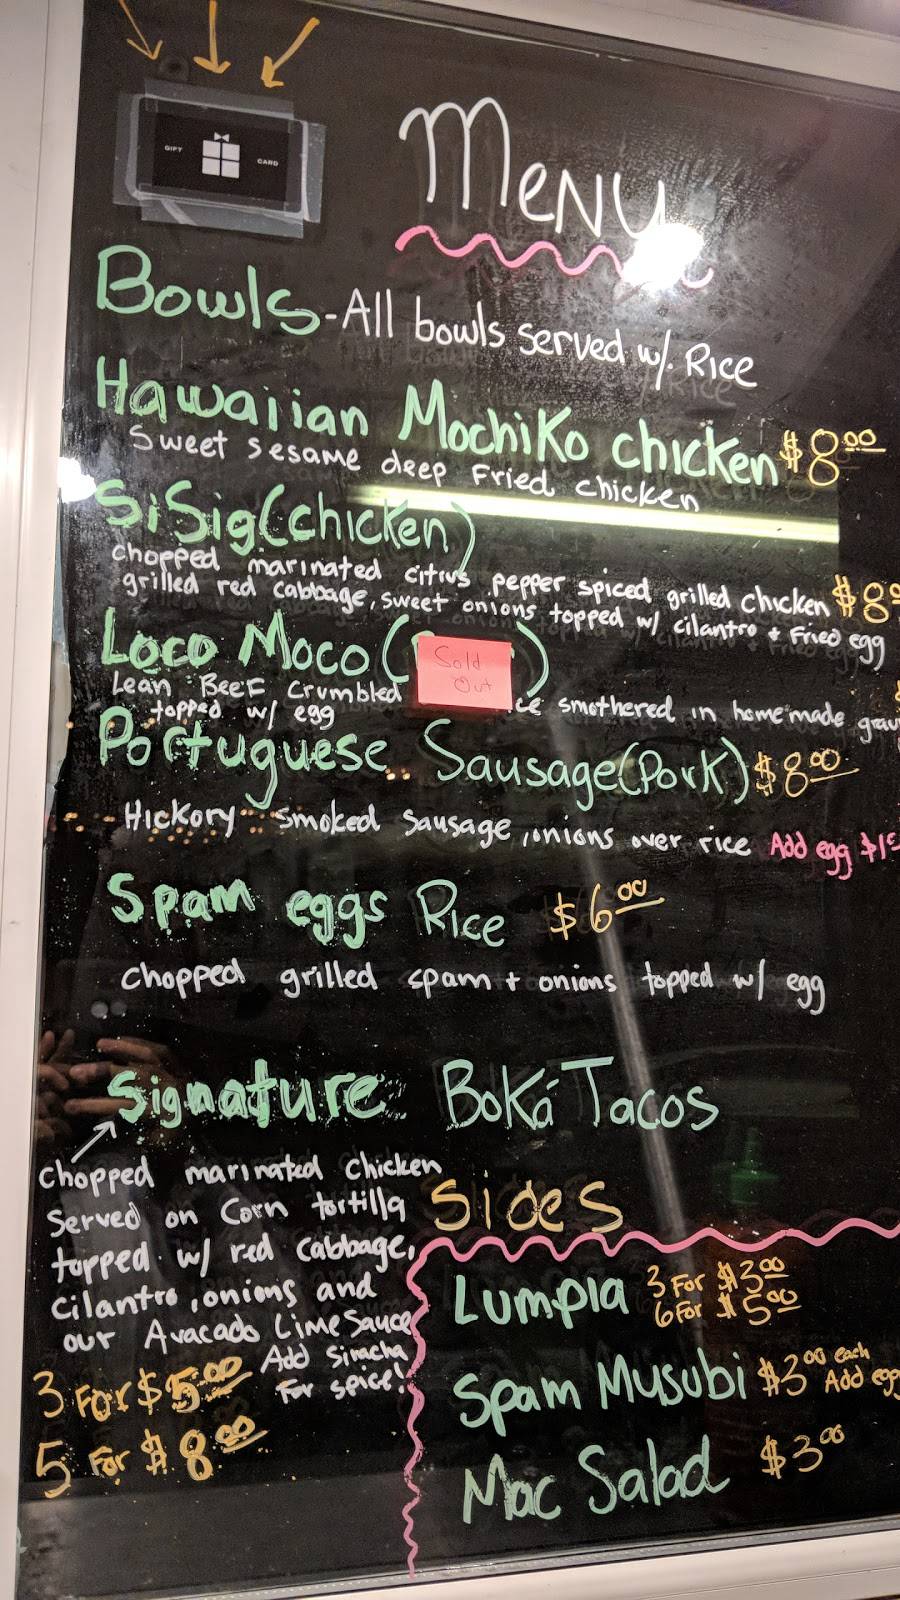 GIFT CARD
MENU
Bowls - All bowls served w/. Rice
Hawaiian Mochiko chicken $8.00
Sweet sesame deep Fried chicken
SiSig (chicken)
chopped marinated citrus pepper spiced grilled chicken $8
grilled red cabbage, sweet onions topped w/ cilantro + Fried egg
Loco Moco ( )
Sold
Out
Lean BeeF crumbled smothered in homemade
topped w/ egg
Portuguese Sausage (Pork) $8.00
Hickory smoked sausage, onions over rice Add egg $1
Spam eggs Rice $6.00
chopped grilled spam + onions topped w/ egg
Signature Boká Tacos
chopped marinated chicken
served on corn tortilla
topped w/ red cabbage,
cilantro, onions and
our Avacado Lime Sauce
Add Siracha
For spice!
3 For $5.00
5 For $8.00
Sides
Lumpia 3 For $3.00
6 For $5.00
Spam Musubi $3.00 each
Add egg
Mac Salad $3.00